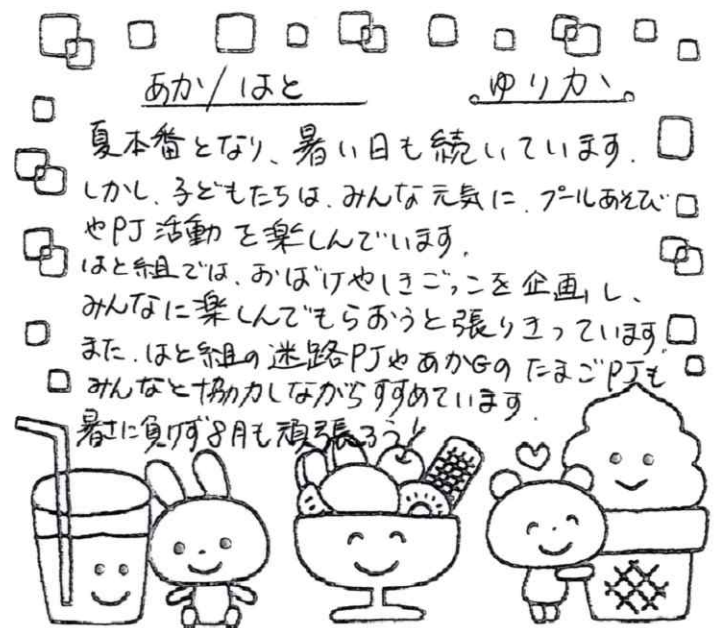 あか/はと ゆりか
夏本番となり、暑い日も続いています。
しかし、子どもたちは、みんな元気に、プールあそび
やPJ活動を楽しんでいます。
はと組では、おばけやしきごっこを企画し、
みんなに楽しんでもらおうと張りきっています。
また、はと組の迷路PJやあかGのたまごPJも
みんなと協力しながらすすめています。
暑さに負けず8月も頑張ろう!